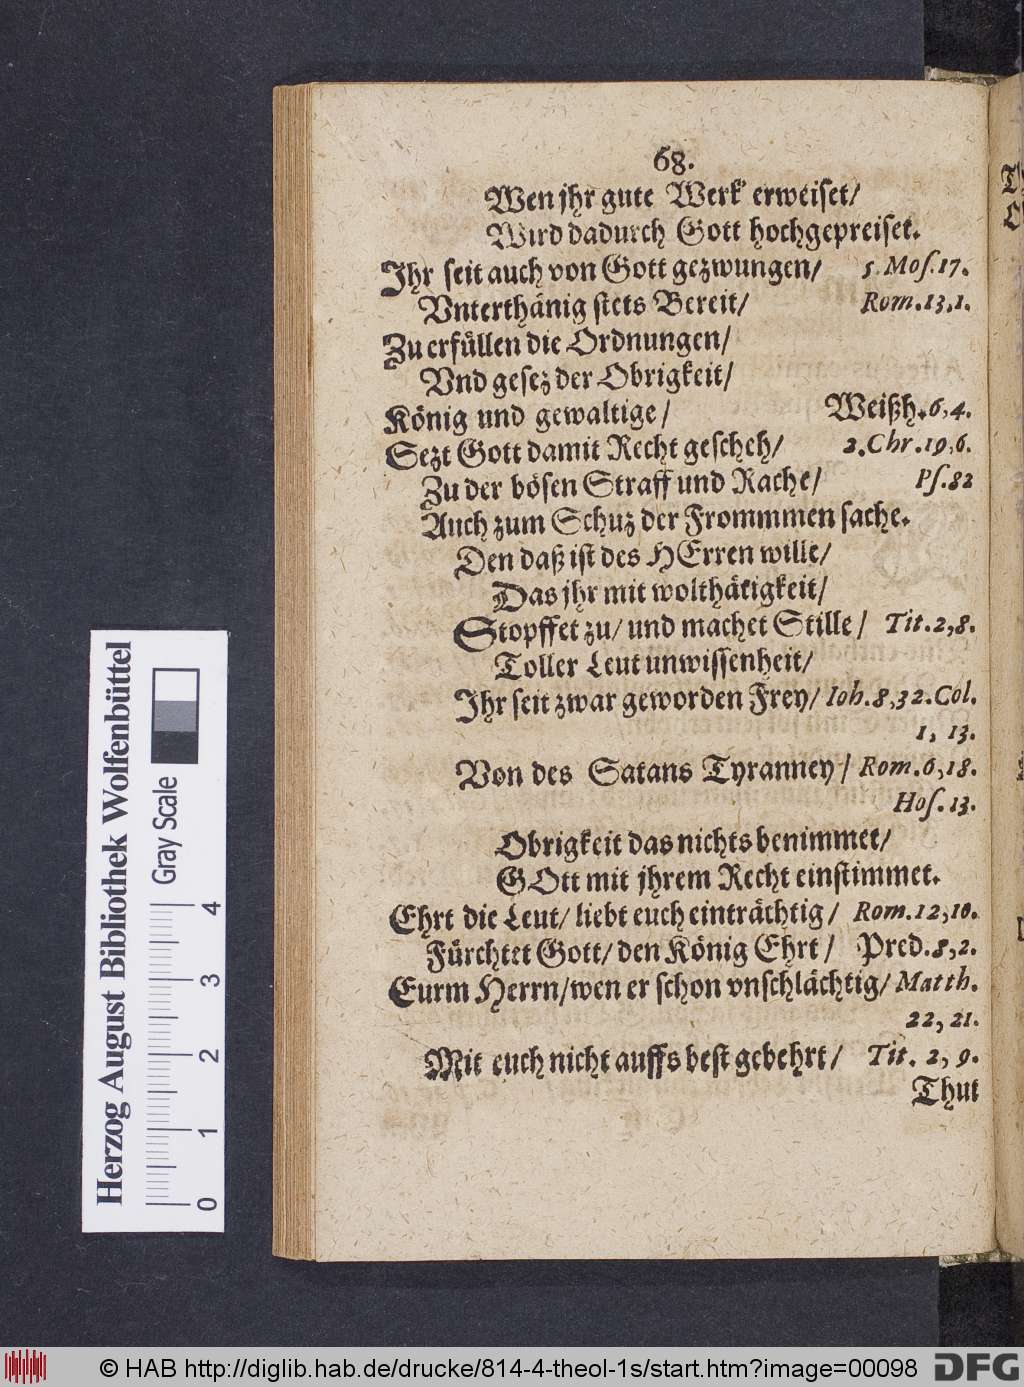 68.
Wen jhr gute Werk erweiset/
Wird dadurch Gott hochgepreiset.
Ihr seit auch von Gott gezwungen/ 5 Mos.17.
Vnterthänig stets Bereit/ Rom.13,1.
Zu erfüllen die Ordnungen/
Vnd gesez der Obrigkeit/
König und gewaltige/ Weißh.6,4.
Sezt Gott damit Recht gescheh/ 2.Chr.19,6.
Zu der bösen Straff und Rache/ Ps.82
Auch zum Schuz der Frommmen sache.
Den daß ist des HErren wille/
Das jhr mit wolthätigkeit/
Stopffet zu/ und machet Stille/ Tit.2,8.
Toller Leut unwissenheit/
Ihr seit zwar geworden Frey/ Ioh.8,32.Col.
1, 13.
Von des Satans Tyranney/ Rom.6,18.
Hos.13.
Obrigkeit das nichts benimmet/
GOtt mit jhrem Recht einstimmet.
Ehrt die Leut/ liebt euch einträchtig/ Rom.12,10.
Fürchtet Gott/ den König Ehrt/ Pred.8,2.
Eurm Herrn/wen er schon vnschlächtig/ Matth.
22, 21.
Mit euch nicht auffs best gebehrt/ Tit. 2, 9.
Thut
Herzog August Bibliothek Wolfenbüttel
Gray Scale
0 1 2 3 4
© HAB http://diglib.hab.de/drucke/814-4-theol-1s/start.htm?image=00098
DFG